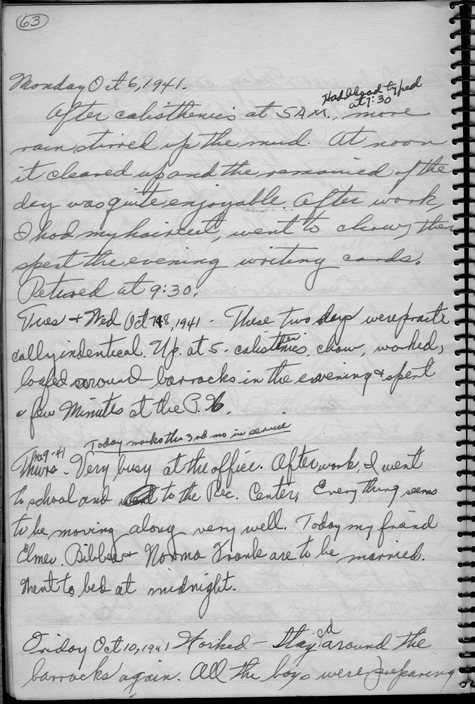 63
Monday Oct 6, 1941.
Had blood typed
at 7:30
After calisthenics at 5 A.M., more
rain stirred up the mud. At noon
it cleared up and the remained of the
day was quite enjoyable. After work,
I had my haircut, went to chow, then
spent the evening writing cards.
Retired at 9:30.
Tues + Wed Oct 7 & 8, 1941 - These two days were practi
cally indentical. Up at 5 - calisthenics, chow, worked,
loafed around barracks in the evening & spent
a few minutes at the P.X.
Today marks the 3rd mo in service
Oct 9-41
Thurs. Very busy at the office. After work, I went
to school and to the Rec. Center. Everything seems
to be moving along very well. Today my friend
Elmer Bibbs + Norma Frank are to be married.
Went to bed at midnight.
Friday Oct 10, 1941 Worked - Stayed around the
barracks again. All the boys were preparing